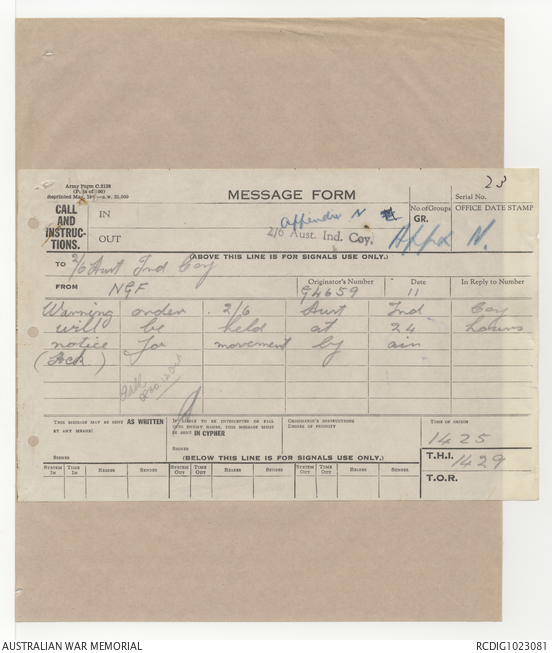 23
Army Form C.2128
(Pads of 100)
MESSAGE FORM
Serial No.
CALL
AND
INSTRUC-
TIONS.
IN
OUT
Appendix N
2/6 Aust. Ind. Coy.
No. of Groups
GR.
OFFICE DATE STAMP
Appx N.
(ABOVE THIS LINE IS FOR SIGNALS USE ONLY.)
TO 2/6 Aust Ind Coy
FROM NGF
Originator's Number G4659
Date 11
In Reply to Number
Warning order . 2/6 Aust Ind Coy
will be held at 24 hours
notice for movement by air
(Ack)
THIS MESSAGE MAY BE SENT AS WRITTEN
BY ANY MEANS.
IF LIABLE TO BE INTERCEPTED OR FALL
INTO ENEMY HANDS, THIS MESSAGE MUST
BE SENT IN CYPHER
ORIGINATOR'S INSTRUCTIONS
DEGREE OF PRIORITY
TIME OF ORIGIN
1425
SIGNED
SIGNED
(BELOW THIS LINE IS FOR SIGNALS USE ONLY.)
T.H.I. 1429
SYSTEM IN TIME IN READER SENDER SYSTEM OUT TIME OUT READER SENDER SYSTEM OUT TIME OUT READER SENDER
T.O.R.
AUSTRALIAN WAR MEMORIAL
RCDIG1023081